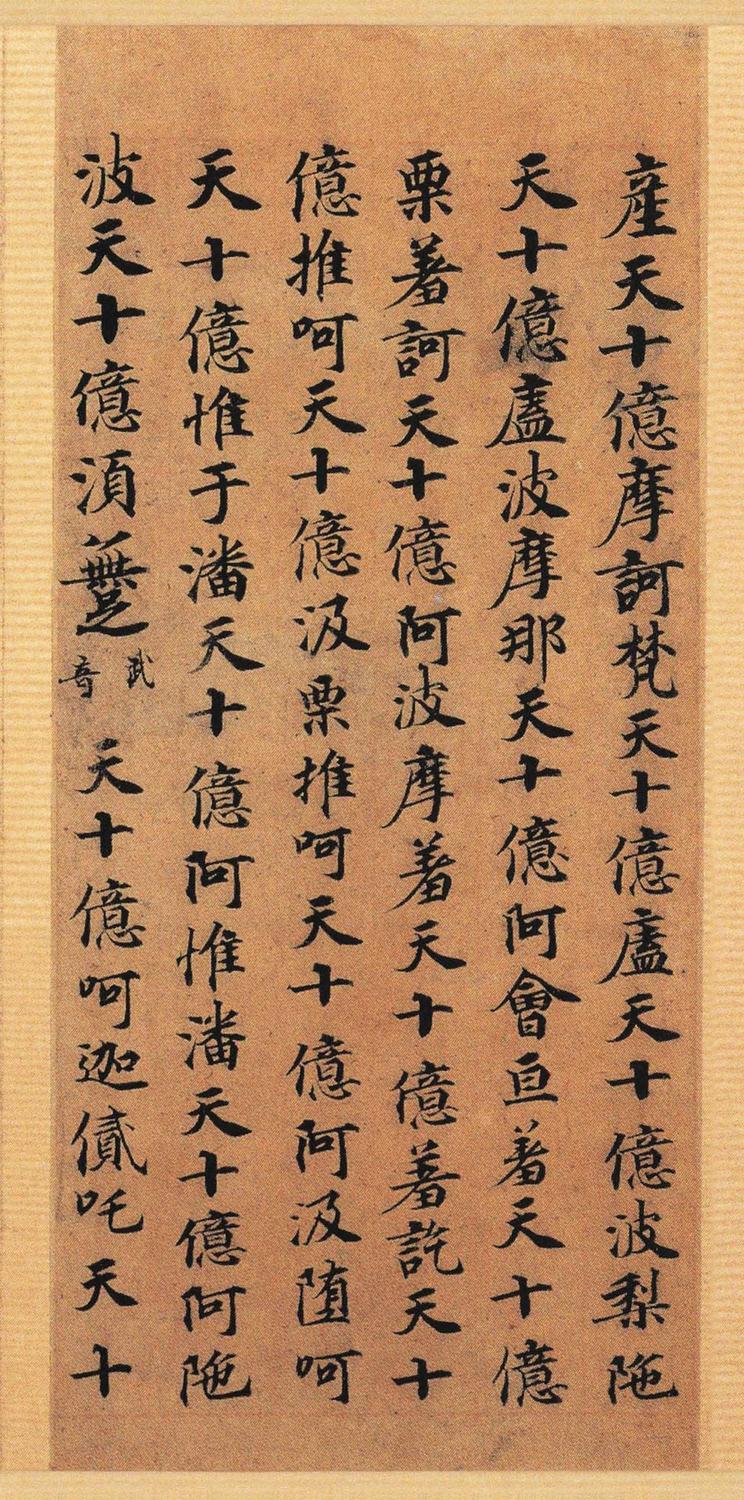 産天十億摩訶梵天十億廬天十億波梨陁
天十億廬波摩那天十億阿會亘著天十億
栗著訶天十億阿波摩著天十億著訖天十
億推呵天十億汲栗推呵天十億阿汲墮呵
天十億惟于潘天十億阿惟潘天十億阿陁
波天十億須 武音 天十億呵迦貮吒天十